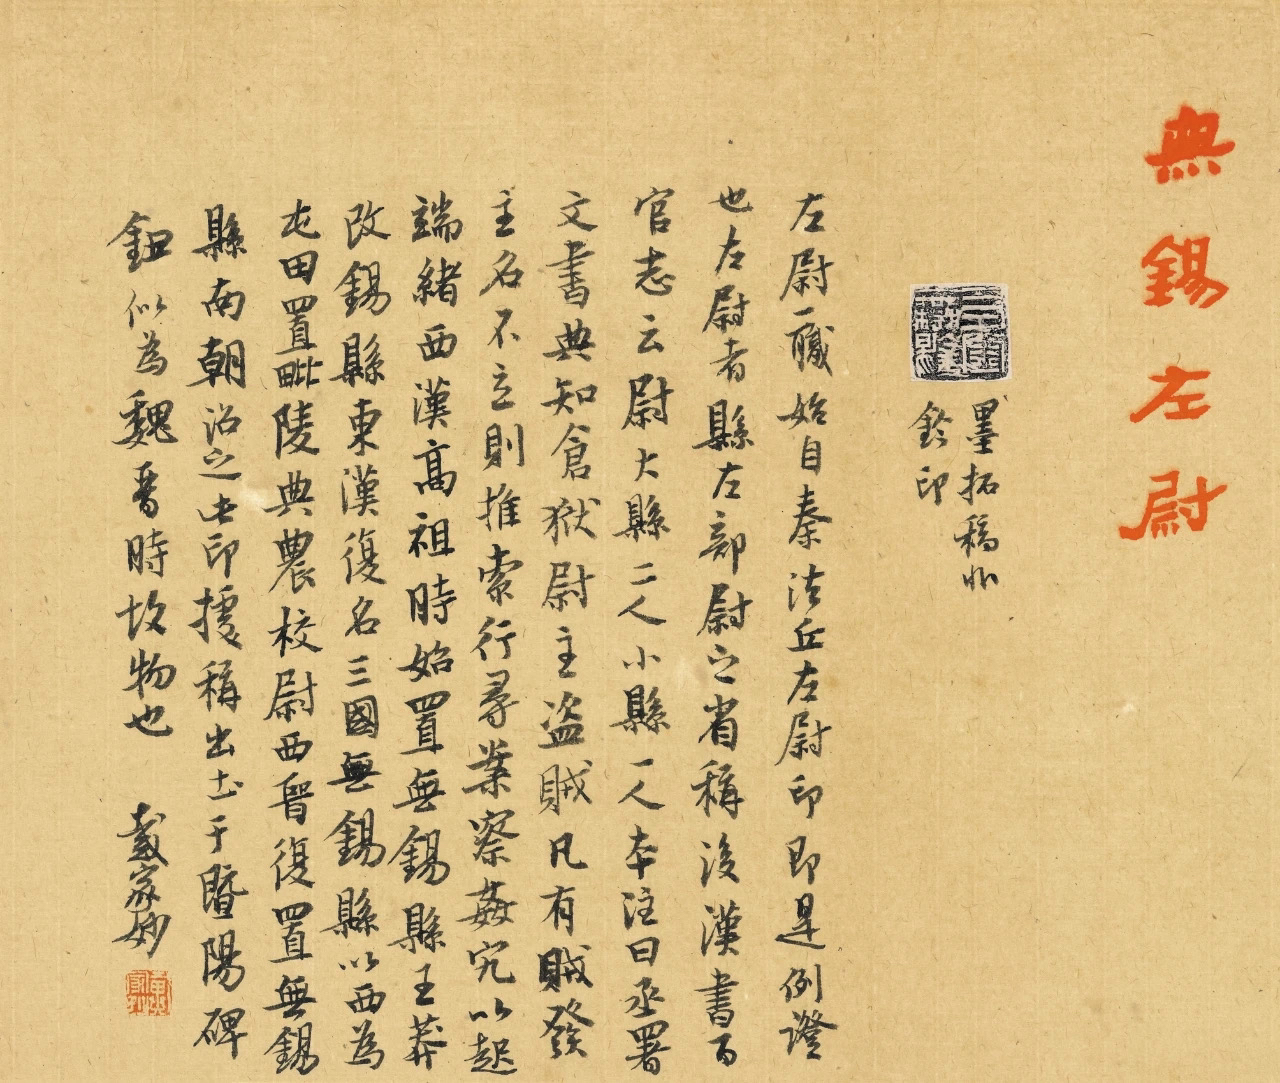 無錫左尉
墨拓稿非
鈐印
左尉一職始自秦法丘左尉印即是例證
也左尉者縣左部尉之省稱後漢書百
官志云尉大縣二人小縣一人本注曰丞署
文書典知倉獄尉主盜賊凡有賊發
主名不立則推索行尋案察姦宄以起
端緒西漢高祖時始置無錫縣王莽
改錫縣東漢復名三國無錫縣以西為
屯田置毗陵典農校尉西晉復置無錫
縣南朝沿之此印據稱出土于暨陽碑
鈕似為魏晉時故物也
戴家妙